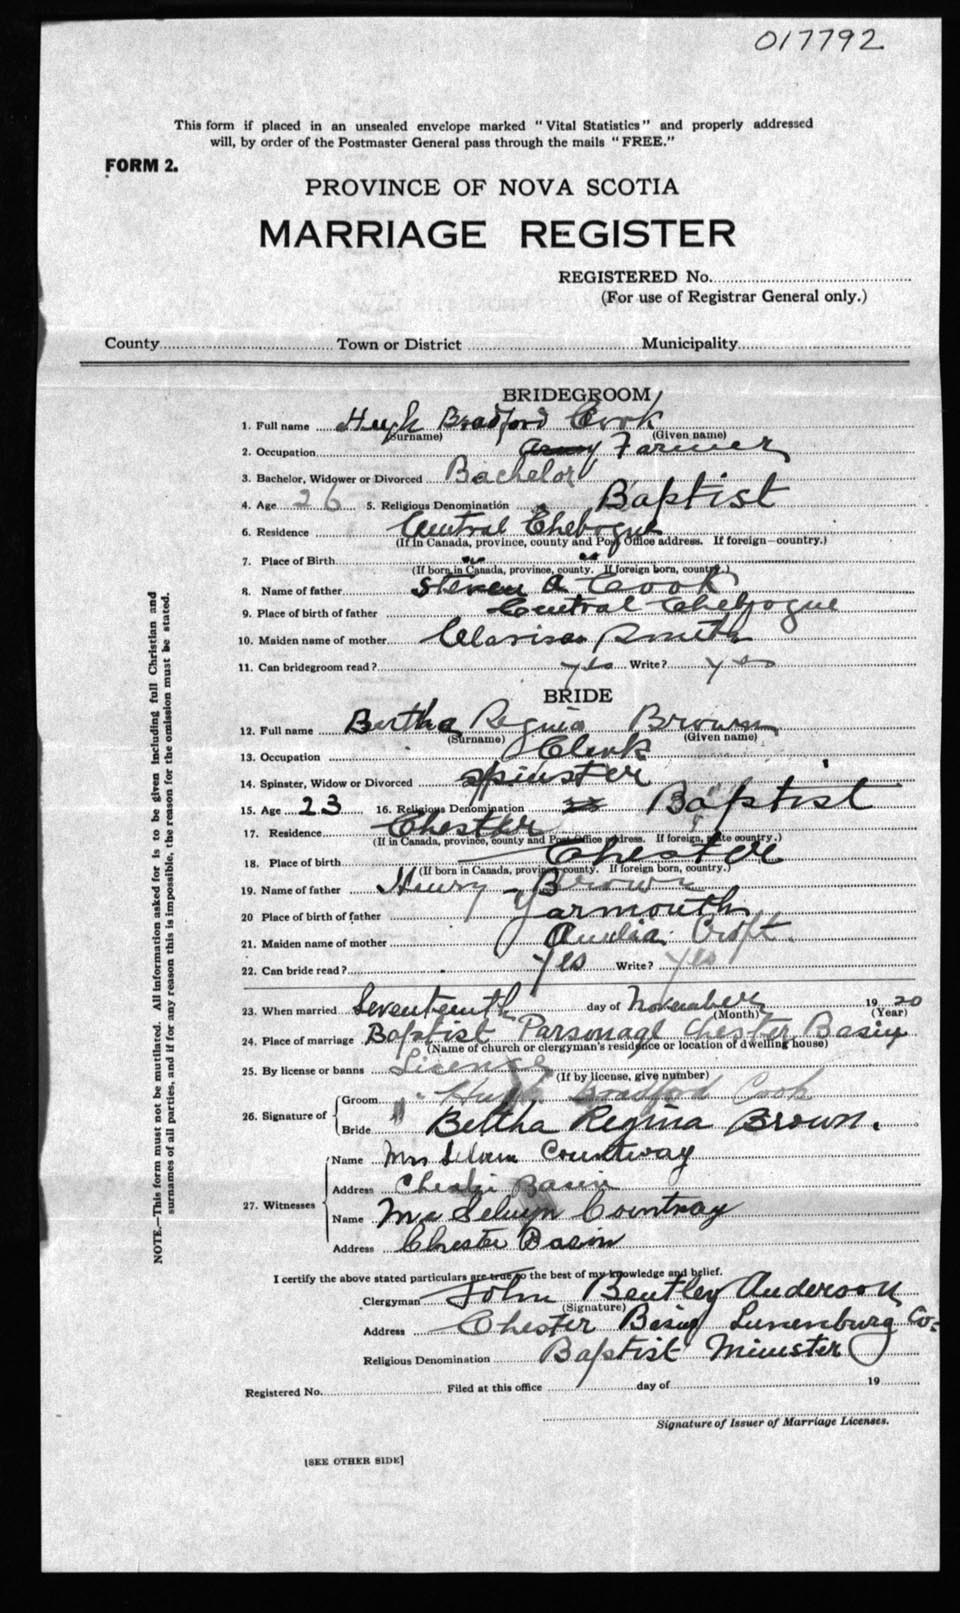 017792
This form if placed in an unsealed envelope marked "Vital Statistics" and properly addressed
will, by order of the Postmaster General pass through the mails "FREE."
FORM 2.
PROVINCE OF NOVA SCOTIA
MARRIAGE REGISTER
REGISTERED No.
(For use of Registrar General only.)
County Town or District Municipality
BRIDEGROOM
1. Full name Hugh Bradford Cook
(Surname) (Given name)
2. Occupation Farmer
3. Bachelor, Widower or Divorced Bachelor
4. Age 26 5. Religious Denomination Baptist
6. Residence Central Chebogue
(If in Canada, province, county and Post Office address. If foreign—country.)
7. Place of Birth " "
(If born in Canada, province, county. If foreign born, country.)
8. Name of father Steven A Cook
9. Place of birth of father Central Chebogue
10. Maiden name of mother Clarissa Smith
11. Can bridegroom read? yes Write? yes
BRIDE
12. Full name Bertha Regina Brown
(Surname) (Given name)
13. Occupation Clerk
14. Spinster, Widow or Divorced Spinster
15. Age 23 16. Religious Denomination Baptist
17. Residence Chester
(If in Canada, province, county and Post Office address. If foreign, state country.)
18. Place of birth Chester
(If born in Canada, province, county. If foreign born, country.)
19. Name of father Henry Brown
20 Place of birth of father Yarmouth
21. Maiden name of mother Aurelia Croft.
22. Can bride read? yes Write? yes
23. When married Seventeenth day of November 1920
(Month) (Year)
24. Place of marriage Baptist Parsonage Chester Basin
(Name of church or clergyman's residence or location of dwelling house)
25. By license or banns License
(If by license, give number)
26. Signature of Groom Hugh Bradford Cook
Bride Bertha Regina Brown.
27. Witnesses
Name Mrs Selvin Countway
Address Chester Basin
Name Mr Selwyn Countway
Address Chester Basin
I certify the above stated particulars are true to the best of my knowledge and belief.
Clergyman John Bentley Anderson
(Signature)
Address Chester Basin Lunenburg Co.
Religious Denomination Baptist Minister
Registered No. Filed at this office day of 19
Signature of Issuer of Marriage Licenses.
[SEE OTHER SIDE]
NOTE.—This form must not be mutilated. All information asked for is to be given including full Christian and
surnames of all parties, and if for any reason this is impossible, the reason for the omission must be stated.